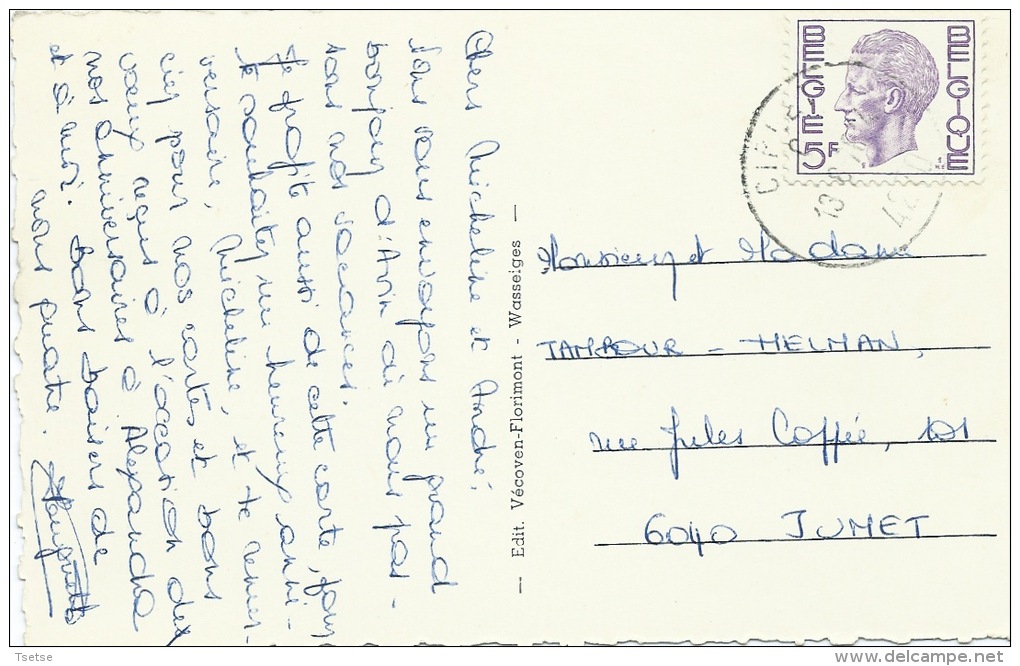 Chers Micheline et André,
Nous vous envoyons un grand
bonjour d'Avin où nous pas-
sons nos vacances.
Je profite aussi de cette carte, pour
te souhaiter un heureux anni-
versaire, Micheline, et te remer-
cier pour nos cartes et bons
vœux reçus à l'occasion des
nos anniversaires à Alexandra
et à moi. Bons baisers de
nous quatre.
— Edit. Vécoven-Florimont - Wasseiges —
BELGIE 5F BELGIQUE
CIPLET
13
42
Monsieur et Madame
TAMBOUR - HELMAN,
rue Jules Coffée, 101
6040 JUMET
Tsetse
delcampe.net